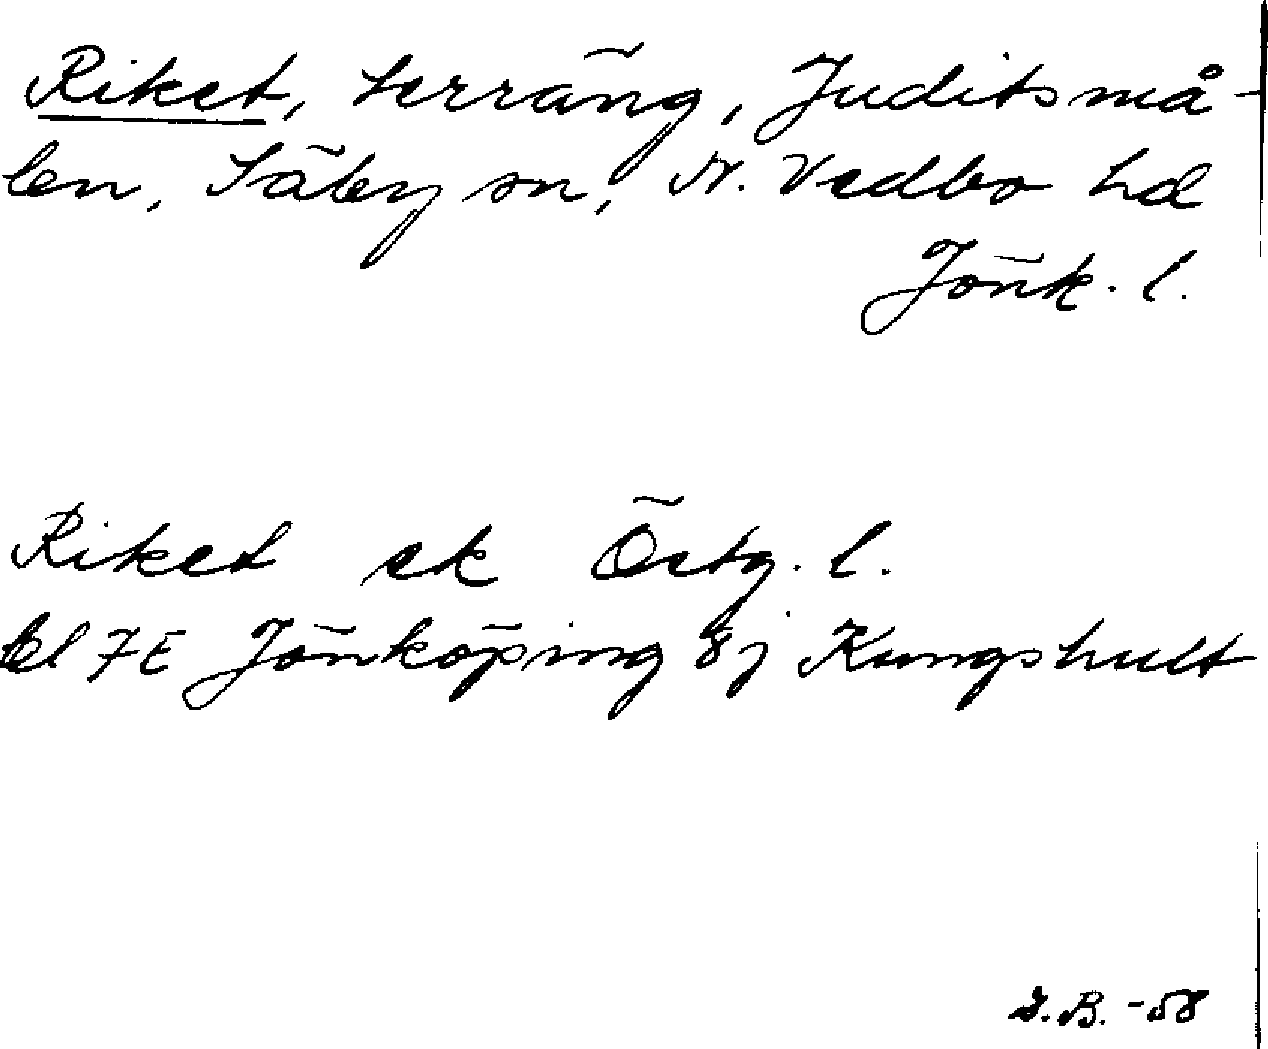 Riket, terräng, Juditsmå-
len, Säby sn, N. Vedbo hd
Jönk. l.
Riket ek Östg. l.
bl 7E Jönköping 8j Kungshult
I.B. -58